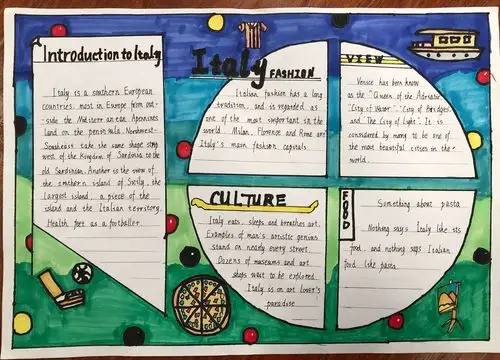 Introduction to Italy
Italy is a southern European
countries, most in Europe from out-
side the Mediterranean Apennines
land on the peninsula. Northwest-
Southeast take the same shape strip
west of the Kingdom of Sardinia to the
old Sardinian. Another is the view of
the southern island of Sicily, the
largest island, a piece of the
island and the Italian territory.
Health feet as a footballer.
Italy FASHION
Italian fashion has a long
tradition, and is regarded as
one of the most important in the
world. Milan, Florence and Rome are
Italy's main fashion capitals.
VIEW
Venice has been known
as the "Queen of the Adriatic",
"City of Water", "City of Bridges",
and "The City of Light". It is
considered by many to be one of
the most beautiful cities in the
world.
CULTURE
Italy eats, sleeps and breathes art.
Examples of man's artistic genius
stand on nearly every street.
Dozens of museums and art
shops wait to be explored.
Italy is an art lover's
paradise.
FOOD
Something about pasta
Nothing says Italy like its
food, and nothing says Italian
food like pasta.